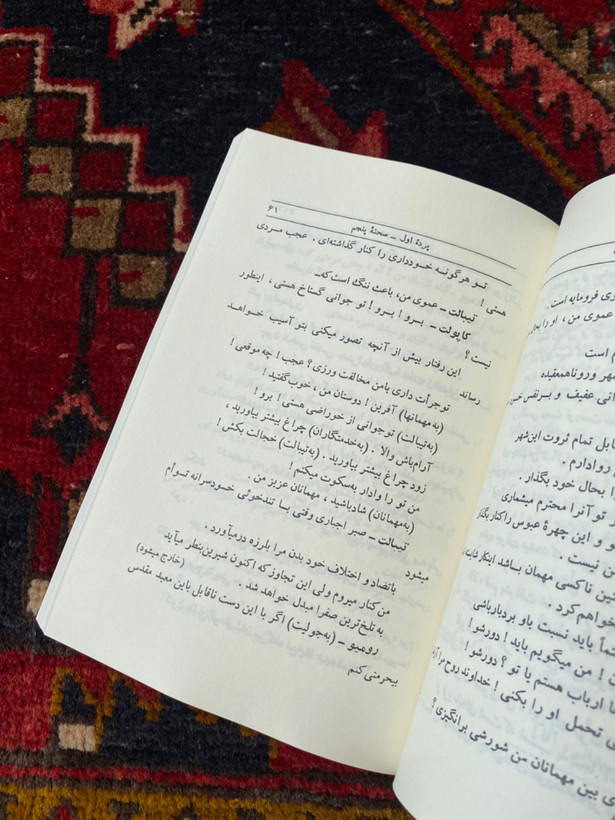 ۶۱
پردهٔ اول ــ صحنهٔ پنجم
تــو هرگونــه خــودداری را کنار گذاشته‌ای . عجب مــردی
هستی !
تیبالت ــ عموی من، باعث ننگ است که ــ
کاپولت ــ بــرو ! بــرو ! تو جوانی گستاخ هستی ، اینطور
نیست ؟
این رفتار بیش از آنچه تصور میکنی بتو آسیب خــواهــد
رساند
توجرأت داری بامن مخالفت ورزی ؟ عجب ! چه موقعی !
(به‌مهمانها) آفرین ! دوستان من ، خوب گفتید !
(به‌تیبالت) تو جوانی از خودراضی هستی ! برو !
آرام‌باش والا . (به‌خدمتگاران) چراغ بیشتر بیاورید ،
زود چراغ بیشتر بیاورید . (به‌تیبالت) خجالت بکش !
من تو را وادار به‌سکوت میکنم !
(به‌مهمانان) شادباشید ، مهمانان عزیز من .
تیبالت ــ صبر اجباری وقتی بــا تندخوئی خــودسرانه تــوأم
میشود
باتضاد و اختلاف خود بدن مرا بلرزه درمیآورد .
من کنار میروم ولی این تجاوز که اکنون شیرین بنظر میآید
به تلخ‌ترین صفرا مبدل خواهد شد . (خارج میشود)
رومیو ــ (به‌جولیت) اگر با این دست ناقابل باین معبد مقدس
بیحرمتی کنم
زی فرومایه است .
عموی من ، او را بحال
است
شهر وروناهمعقیده
انی عفیف و سرنفس
ابل تمام ثروت این‌شهر
روادارم .
بحال خود بگذار .
تو آنرا محترم میشماری
و این چهرهٔ عبوس را کنار بگذار
ن نیست .
نین ناکسی مهمان باشد
خواهم کرد .
تماً باید نسبت باو بردبارباشی
! من میگویم باید ! دورشو !
ا ارباب هستم یا تو ؟ دورشو !
ی تحمل او را بکنی ! خداوند روح مرا
ی بین مهمانان من شورشی برانگیزی ؟